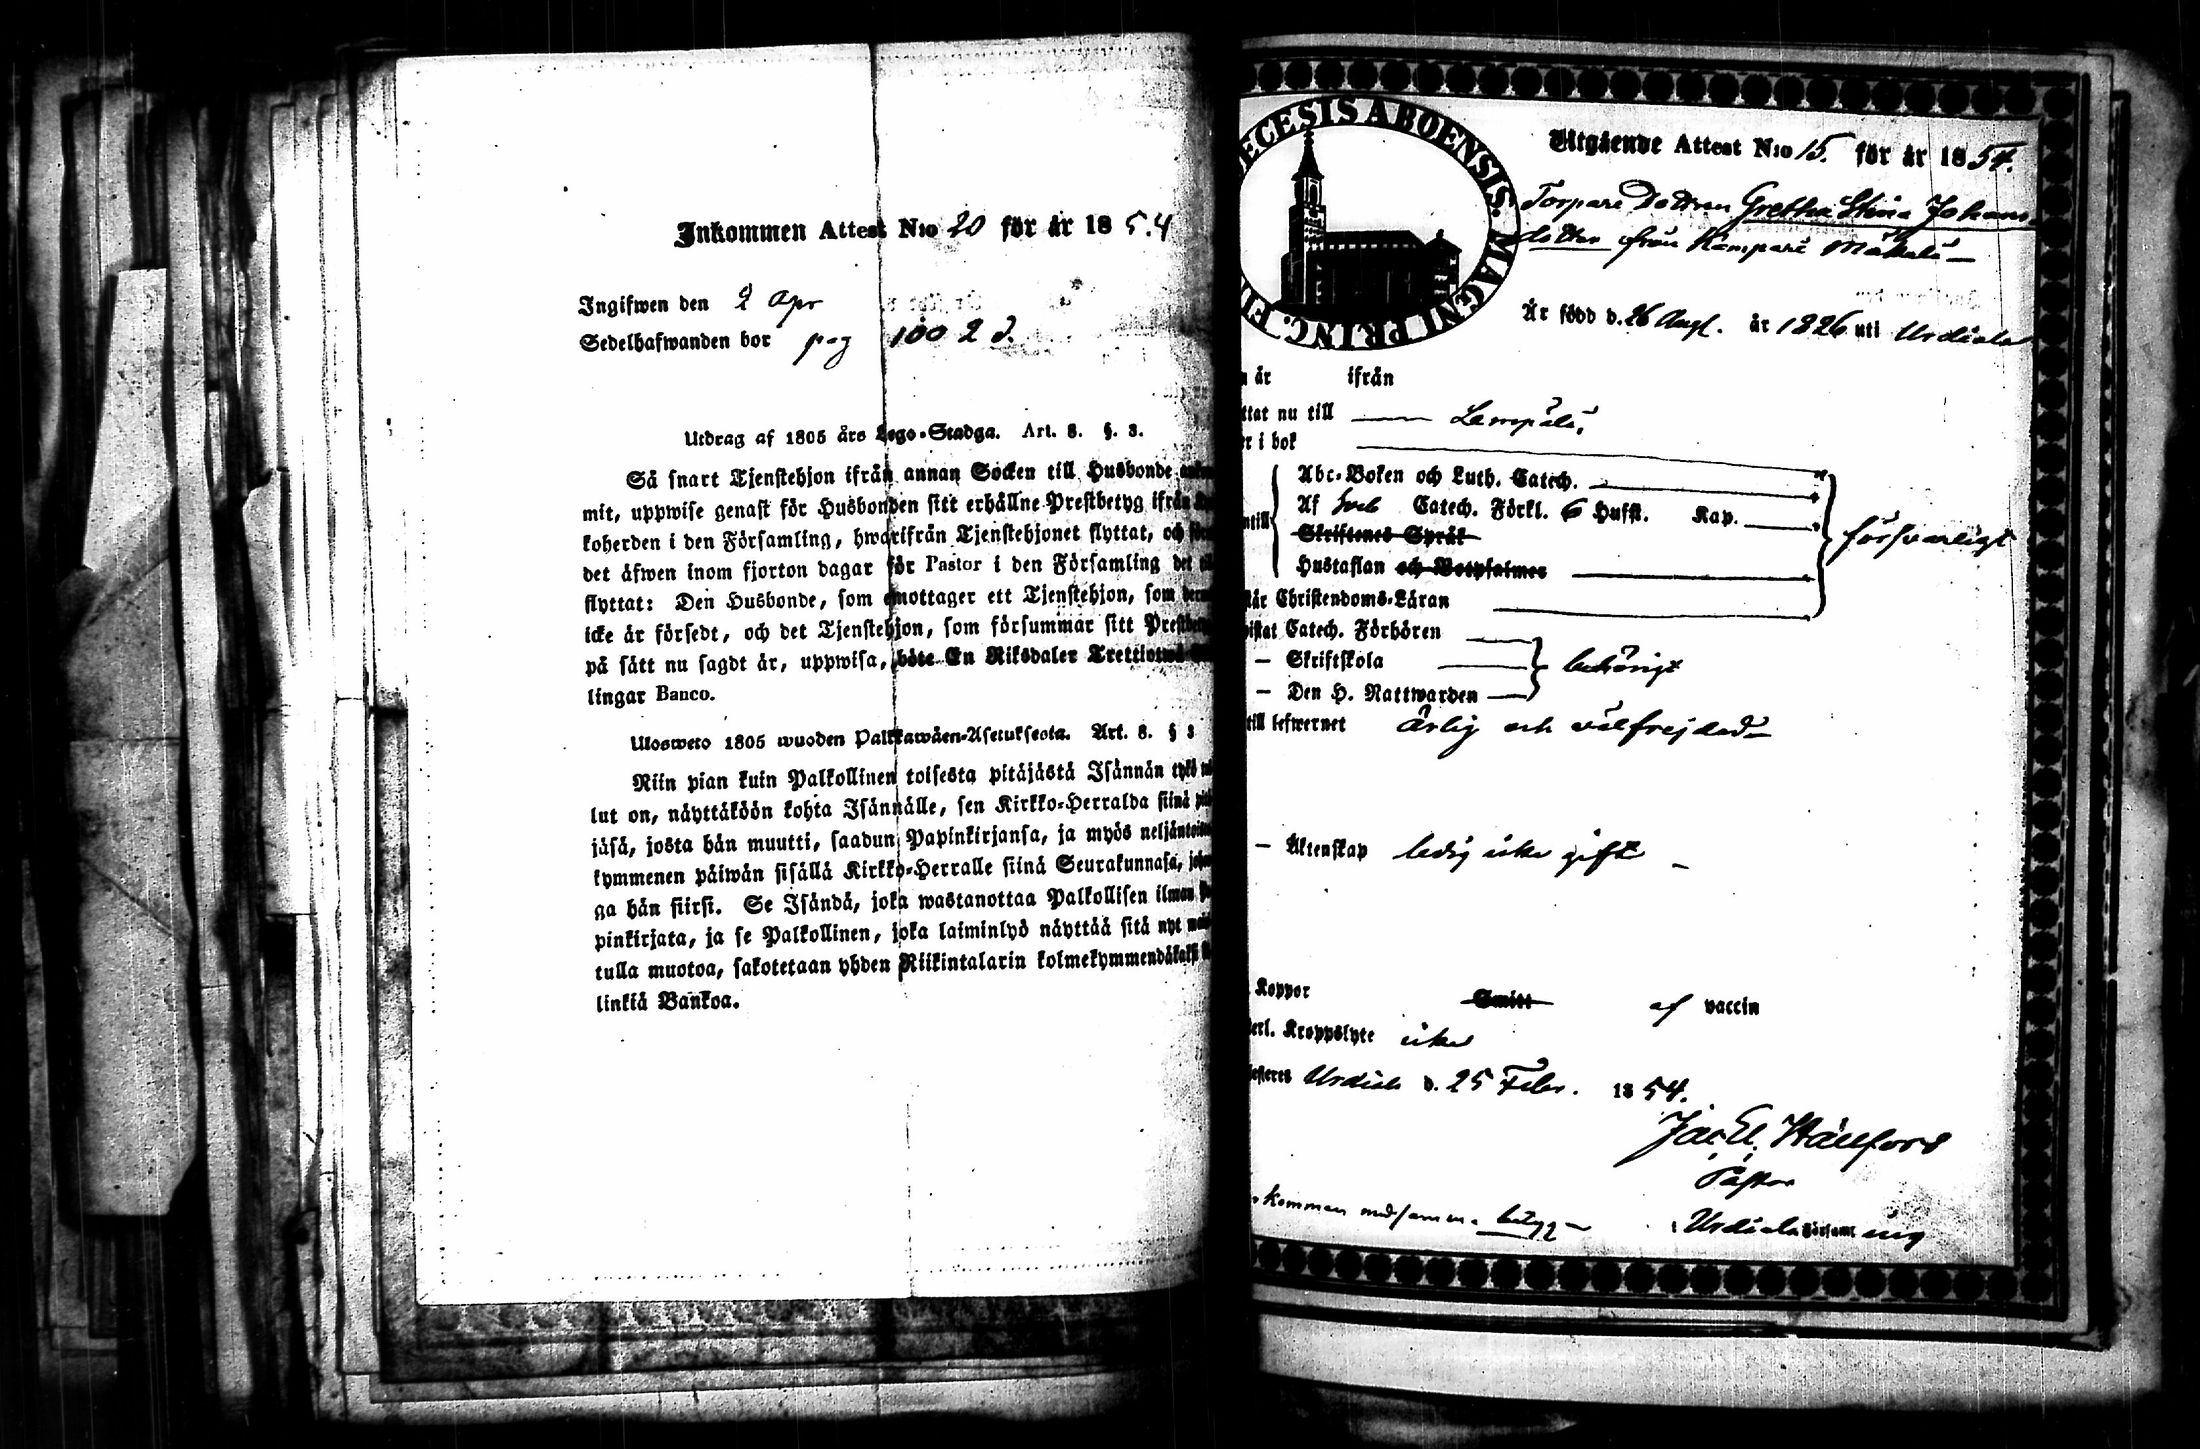 Inkommen Attest N:o 20 för år 185.4
Ingifwen den 2 Apr
Sedelhafwanden bor pag 100 2 d.
Utdrag af 1805 års Lego-Stadga. Art. 8. §. 3.
Så snart Tjenstehjon ifrån annan Socken till Husbonde
mit, uppwise genast för Husbonden sitt erhållne Prestbetyg ifrån
koherden i den Församling, hwarifrån Tjenstehjonet flyttat, och
det äfwen inom fjorton dagar för Pastor i den Församling det
flyttat: Den Husbonde, som emottager ett Tjenstehjon, som
icke är försedt, och det Tjenstehjon, som försummar sitt
på sätt nu sagdt är, uppwisa, böte En Riksdaler
lingar Banco.
Ulosweto 1805 wuoden Palkkawäen-Asetuksesta. Art. 8. § 3
Niin pian kuin Palkollinen toisesta pitäjästä Isännän tykö
lut on, näyttäköön kohta Isännälle, sen Kirkko-Herralda siinä
jäsä, josta hän muutti, saadun Papinkirjansa, ja myös
kymmenen päiwän sisällä Kirkko-Herralle siinä Seurakunnasa,
ga hän siirsi. Se Isändä, joka wastanottaa Palkollisen ilman
pinkirjata, ja se Palkollinen, joka laiminlyö näyttää sitä nyt
tulla muotoa, sakotetaan yhden Riikintalarin
linkiä Bankoa.
ECESIS ABOENSIS. MAGNI PRINC. FI
Utgående Attest N:o 15. för år 1854.
Torpare Dottren Gretha Stina Johans-
dotter från Kampare Mäkelä
Är född d. 26 Aug. år 1826 uti Urdiala
år ifrån
ttat nu till Lempälä,
r i bok
Abc-Boken och Luth. Catech.
Af Catech. Förkl. 6 Hufst. Kap.
ntill försvarligt
Skriftenes Språk
Hustaflan och Botpsalmer
står Christendoms-Läran
istat Catech. Förhören
— Skriftskola behörigt
— Den H. Nattwarden
till lefwernet ärlig och välfrejdad
— Äktenskap ledig icke gift
Koppor Smitt af vaccin
erl. Kroppslyte icke
testeres Urdiala d. 25 Febr. 1854.
Pastor
kommen betyg
i Urdiala Församling